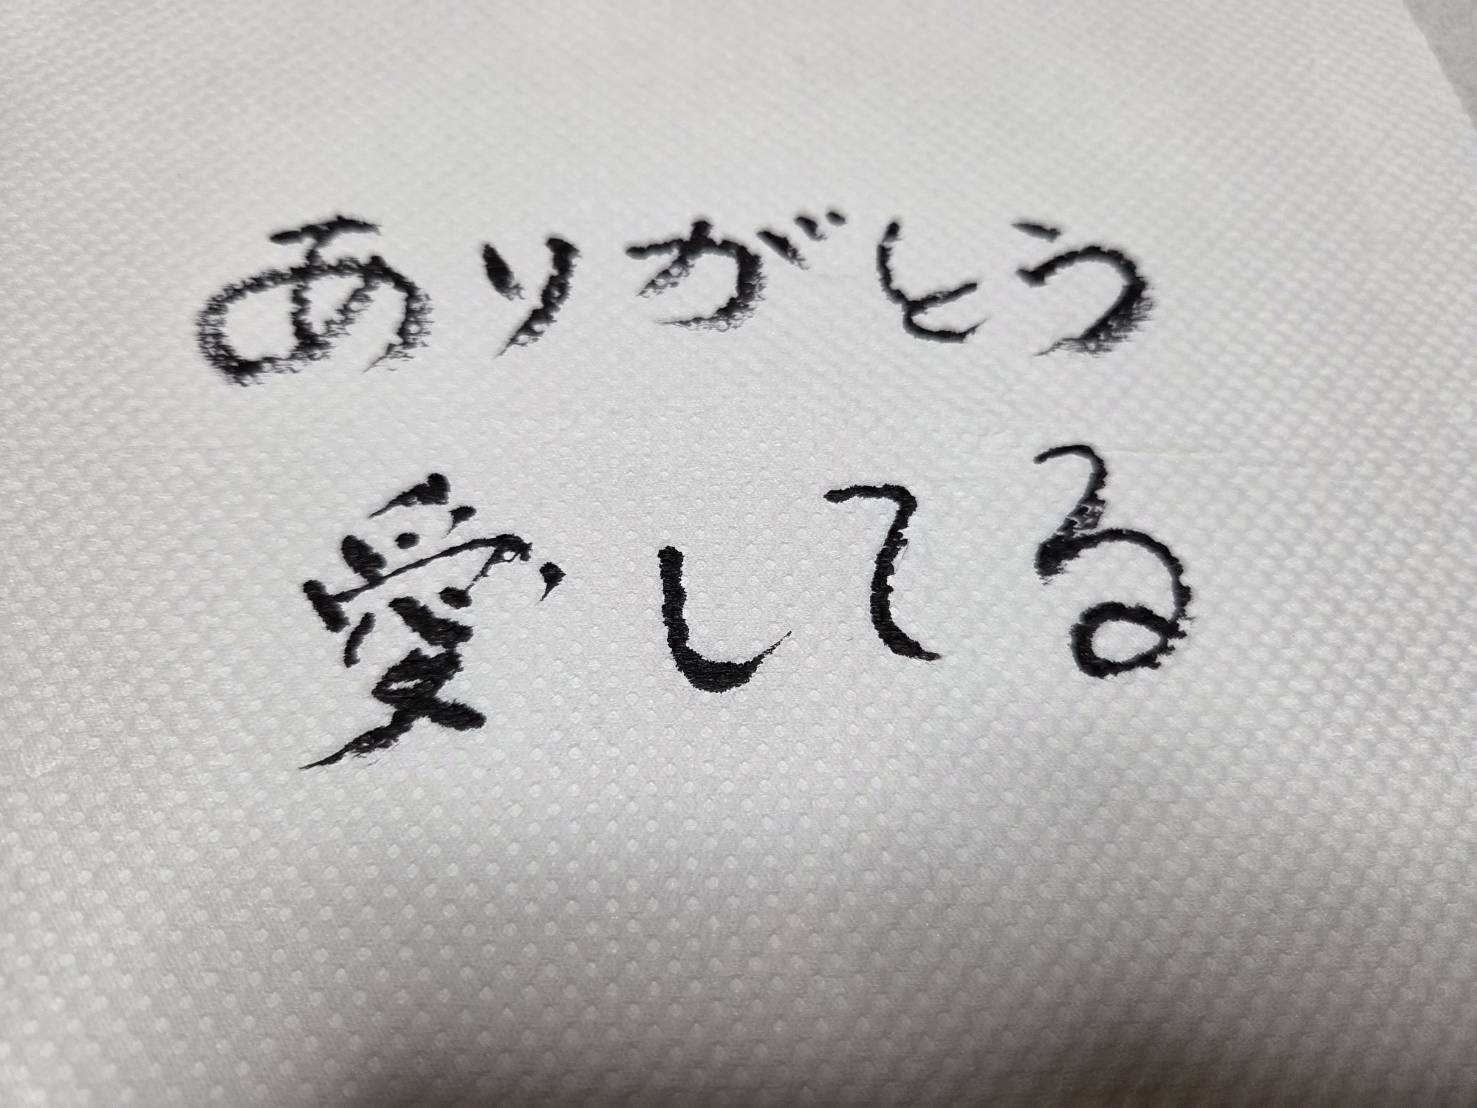 ありがとう
愛してる